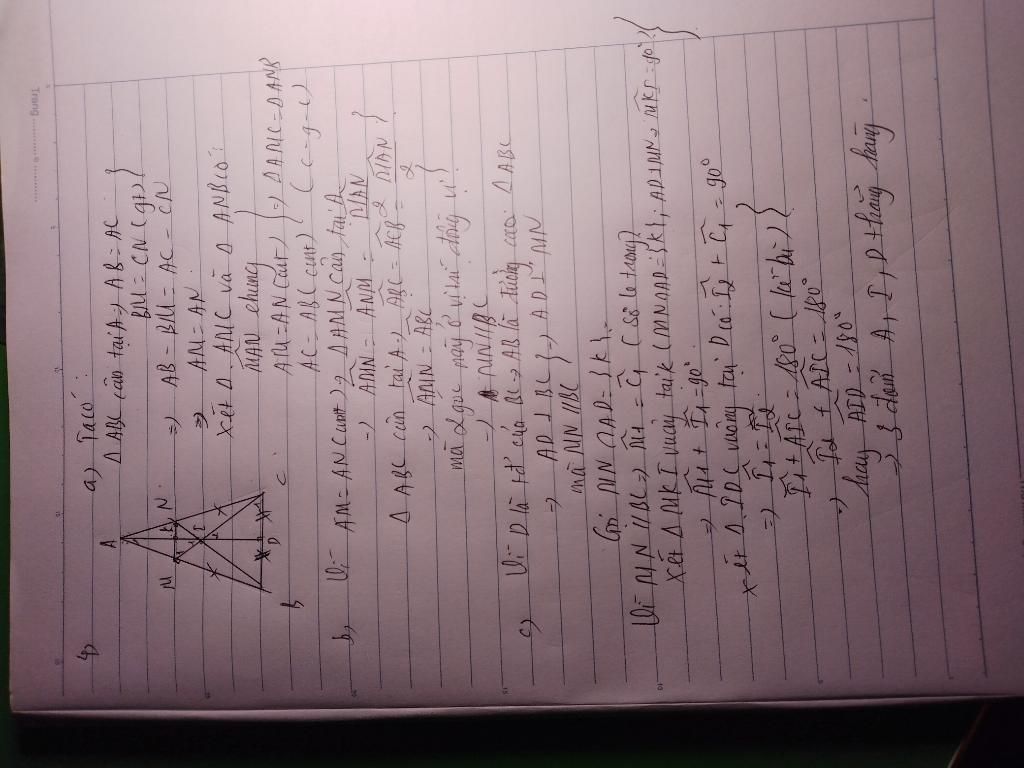 Trang
4)
a) Ta có:
Δ ABC cân tại A => AB = AC }
BM = CN (gt) }
=> AB - BM = AC - CN
=> AM = AN
Xét Δ AMC và Δ ANB có:
MAN chung }
AM = AN (cmt) } => Δ AMC = Δ ANB
AC = AB (cmt) } (c-g-c)
A
M
N
I
B
D
C
b) Vì AM = AN (cmt) => Δ AMN cân tại A
=> AMN = ANM = MAN / 2 }
Δ ABC cân tại A => ABC = ACB = MAN / 2 }
=> AMN = ABC }
mà 2 góc này ở vị trí đồng vị }
=> MN // BC
c) Vì D là tđ của BC => AD là đường cao Δ ABC
=> AD ⊥ BC } => AD ⊥ MN
mà MN // BC }
Gọi MN ∩ AD = {K}
Vì MN // BC => M1 = C1 (so le trong) }
Xét Δ MKI vuông tại K (MN ∩ AD = {K}; AD ⊥ MN => MKI = 90°) }
=> M1 + I1 = 90° }
Xét Δ IDC vuông tại D có: I2 + C1 = 90°
=> I1 = I2 }
I1 + AIC = 180° (kề bù) }
=> I2 + AIC = 180°
hay AID = 180°
=> 3 điểm A, I, D thẳng hàng.